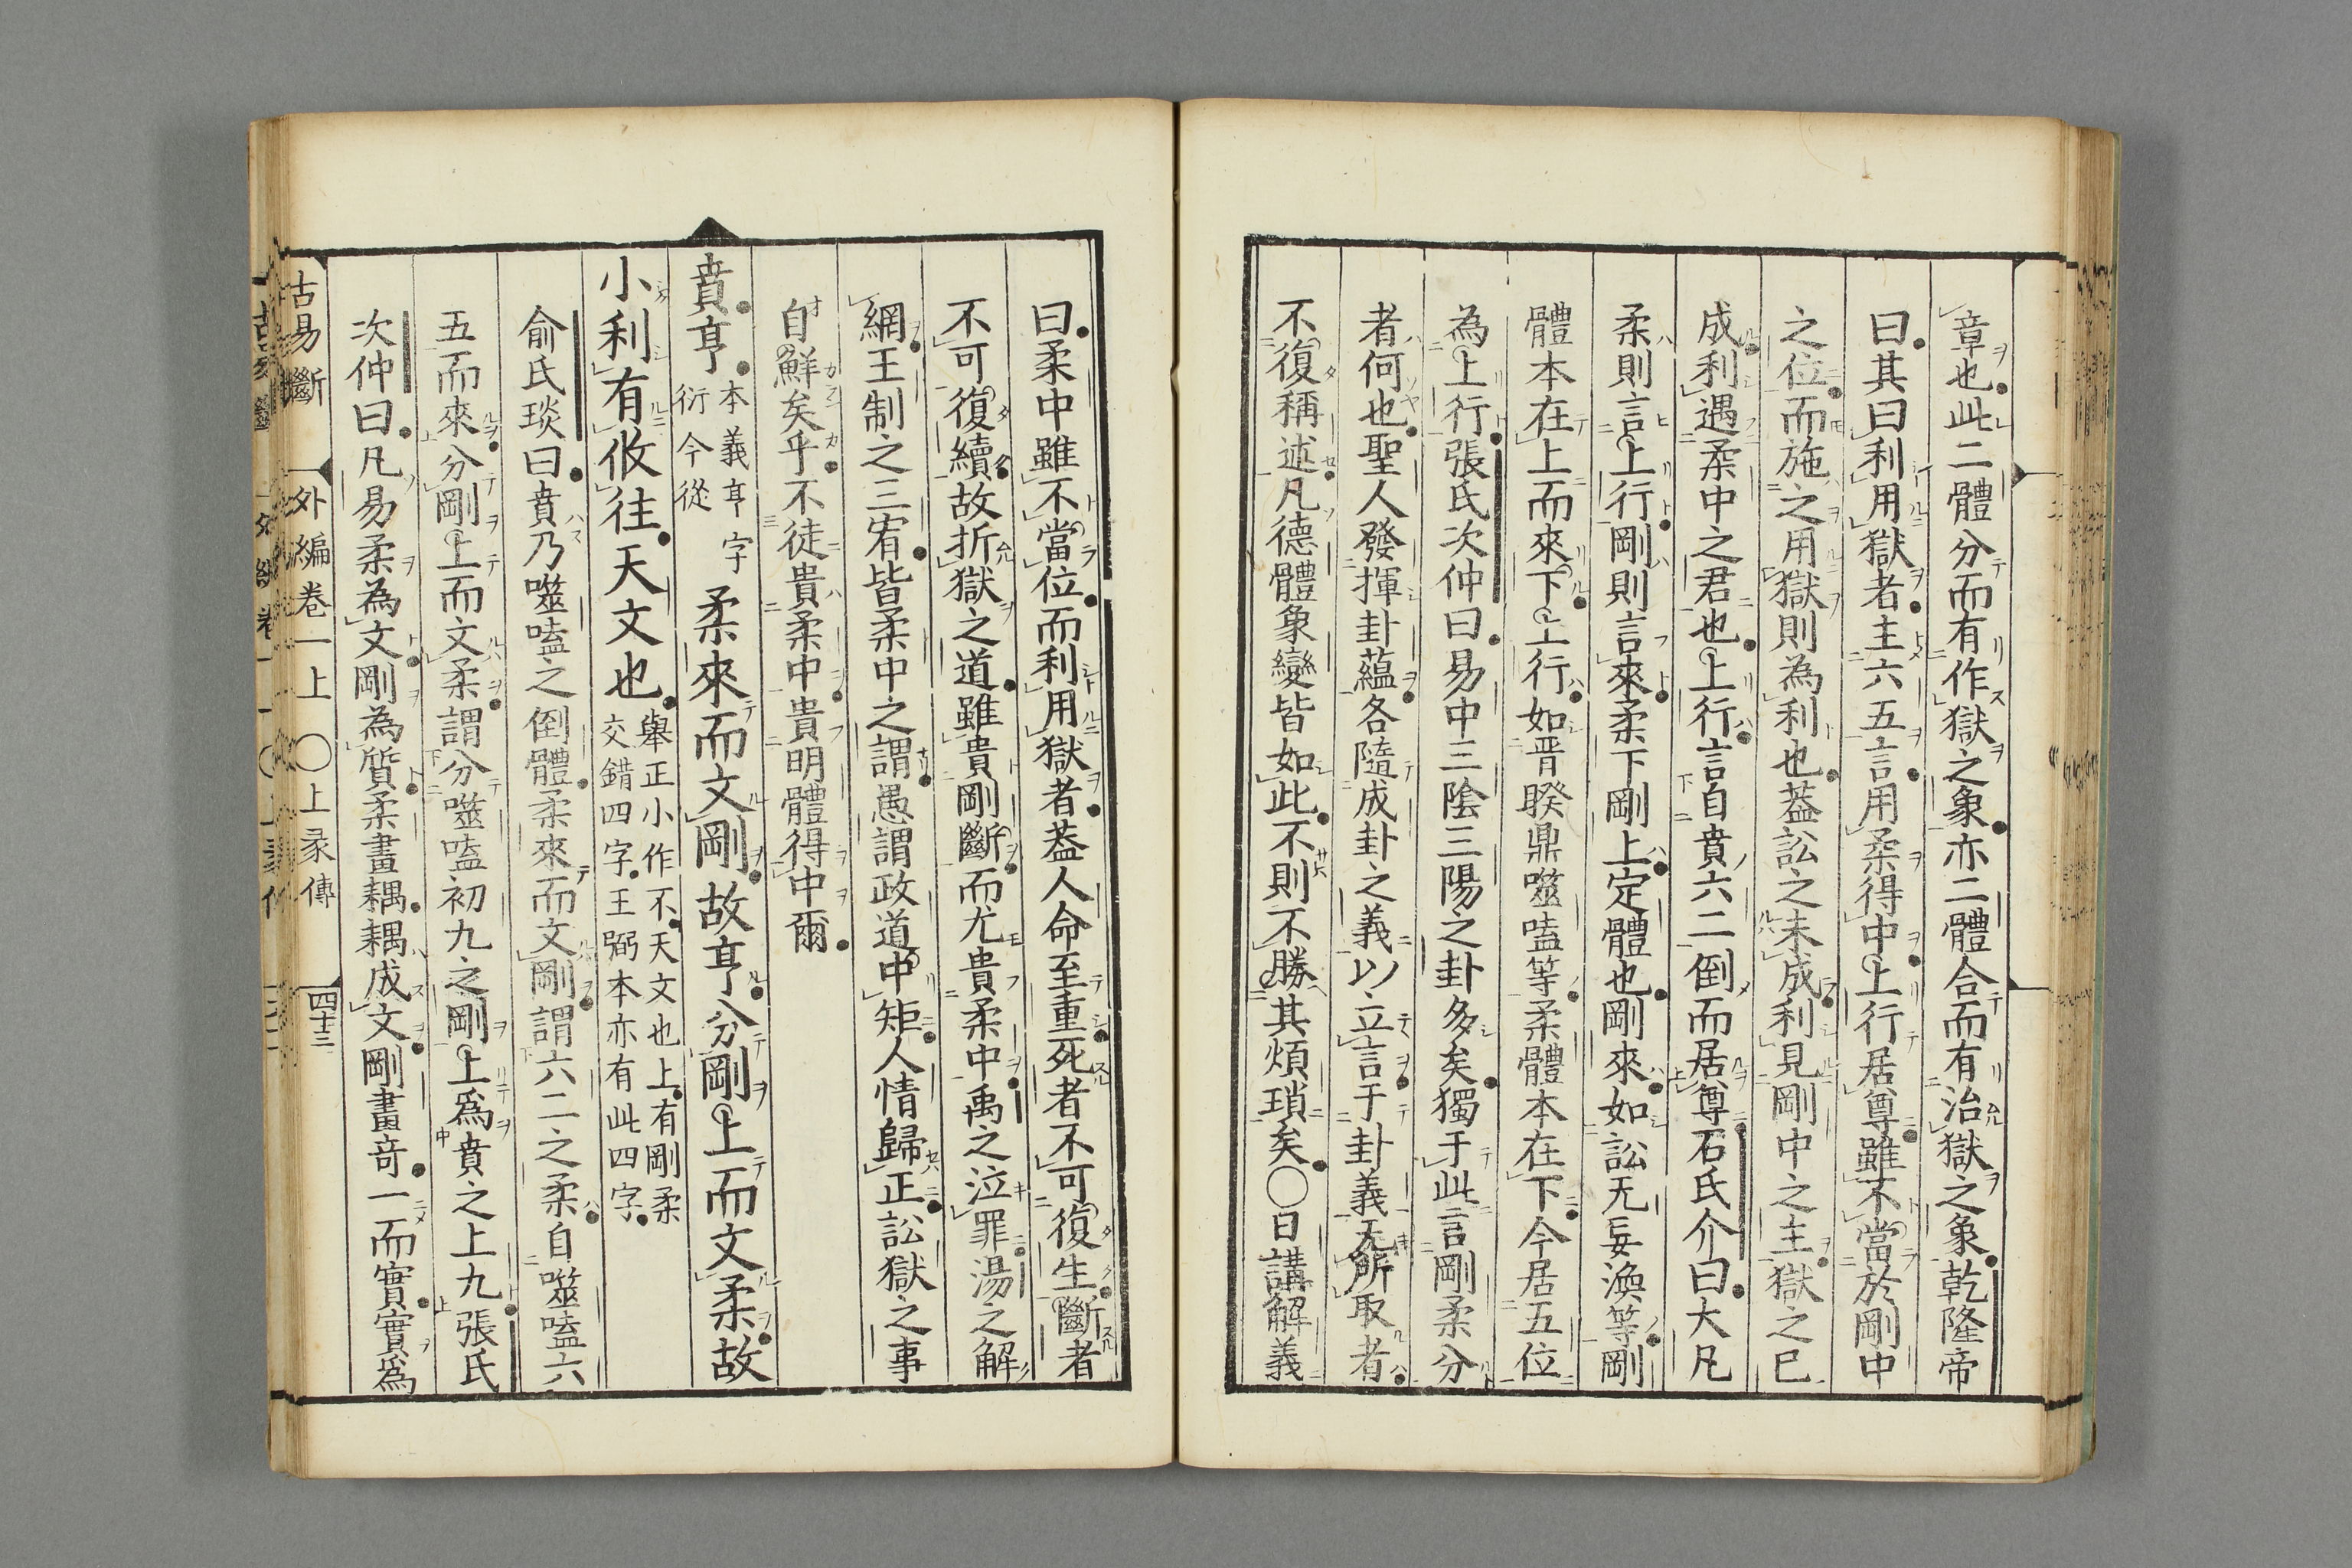 章也此二體分而有作獄之象亦二體合而有治獄之象乾隆帝
曰其曰利用獄者主六五言用柔得中上行居尊雖不當於剛中
之位而施之用獄則為利也葢訟之未成利見剛中之主獄之已
成利遇柔中之君也上行言自賁六二倒而居尊石氏介曰大凡
柔則言上行剛則言來柔下剛上定體也剛來如訟无妄渙等剛
體本在上而來下上行如晋睽鼎噬嗑等柔體本在下今居五位
為上行張氏次仲曰易中三陰三陽之卦多矣獨于此言剛柔分
者何也聖人發揮卦蘊各隨成卦之義以立言于卦義无所取者
不復稱述凡德體象變皆如此不則不勝其煩瑣矣〇日講解義
曰柔中雖不當位而利用獄者葢人命至重死者不可復生斷者
不可復續故折獄之道雖貴剛斷而尤貴柔中禹之泣罪湯之解
網王制之三宥皆柔中之謂愚謂政道中矩人情歸正訟獄之事
自鮮矣乎不徒貴柔中貴明體得中爾
賁亨本義亨字衍今從柔來而文剛故亨分剛上而文柔故
小利有攸往天文也舉正小作不天文也上有剛柔交錯四字王弼本亦有此四字
俞氏琰曰賁乃噬嗑之倒體柔來而文剛謂六二之柔自噬嗑六
五而來分剛上而文柔謂分噬嗑初九之剛上爲賁之上九張氏
次仲曰凡易柔為文剛為質柔畫耦耦成文剛畫奇一而實實爲
古易斷 外編卷一上 〇上彖傳 四十三